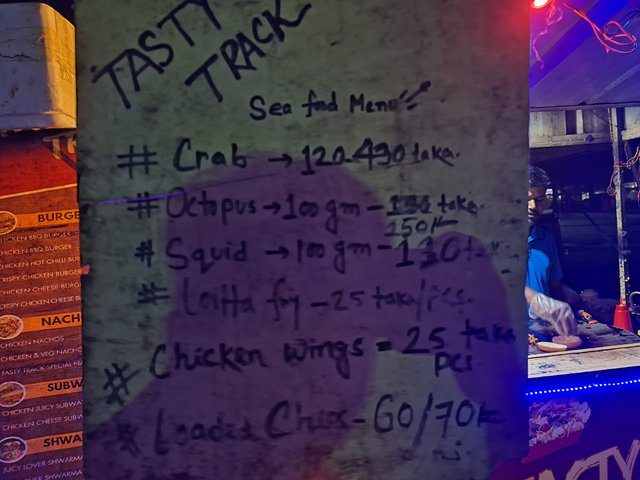 TASTY
TRACK
Sea food Menu
# Crab → 120-430 taka.
# Octopus → 100 gm - 130 taka.
150/-
# Squid → 100 gm - 130
# Loitta fry - 25 taka/pcs.
# Chicken wings = 25 taka
pcs.
# Loaded Chips - 60/70
BURGE
CHICKEN BBQ BURGER
CHICKEN HOT CHILI BU
CRISPY CHICKEN BURGE
CHICKEN CHEESE BURG
CRISPY CHICKEN CHEESE B
NACH
CHICKEN NACHOS
CHICKEN & VEG NACHO
TASTY TRACK SPECIAL NA
SUBW
CHICKEN JUICY SUBWA
CHICKEN CHEESE SUBW
SHWA
JUICY LOVER SHWARMA
TASTY